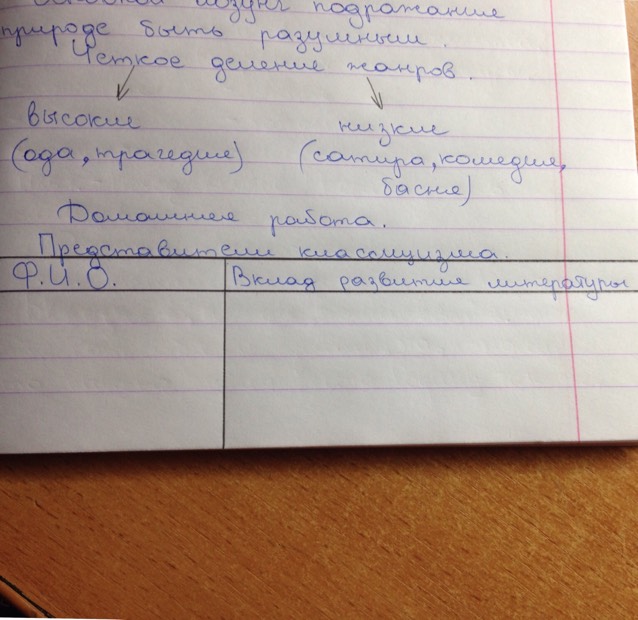 лозунг подражание
природе быть разумным.
Четкое деление жанров.
высокие низкие
(ода, трагедия) (сатира, комедия,
басня)
Домашнее работа.
Представители классицизма.
Ф.И.О. Вклад развитие литературы